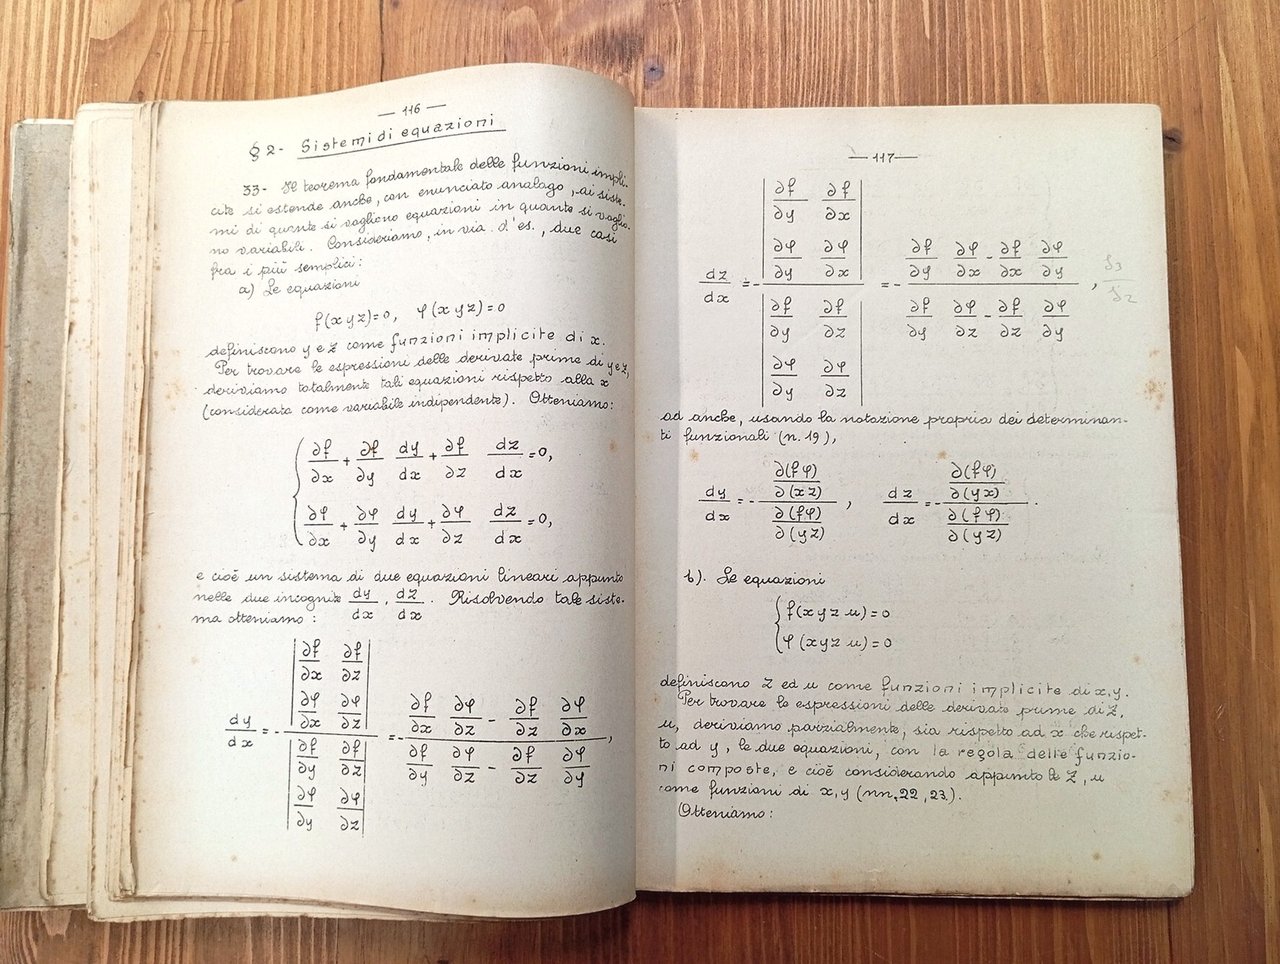 — 116 —
§ 2 - Sistemi di equazioni
33 - Il teorema fondamentale delle funzioni impli-
cite si estende anche, con enunciato analogo, ai siste-
mi di quante si vogliono equazioni in quante si voglio-
no variabili. Consideriamo, in via d'es., due casi
fra i più semplici:
a) Le equazioni
f(xyz)=0, φ(xyz)=0
definiscono y e z come funzioni implicite di x.
Per trovare le espressioni delle derivate prime di y e z,
deriviamo totalmente tali equazioni rispetto alla x
(considerata come variabile indipendente). Otteniamo:
∂f/∂x + ∂f/∂y dy/dx + ∂f/∂z dz/dx = 0,
∂φ/∂x + ∂φ/∂y dy/dx + ∂φ/∂z dz/dx = 0,
e cioè un sistema di due equazioni lineari appunto
nelle due incognite dy/dx, dz/dx. Risolvendo tale siste-
ma otteniamo:
dy/dx = - |∂f/∂x ∂f/∂z ∂φ/∂x ∂φ/∂z| / |∂f/∂y ∂f/∂z ∂φ/∂y ∂φ/∂z| = - (∂f/∂x ∂φ/∂z - ∂f/∂z ∂φ/∂x) / (∂f/∂y ∂φ/∂z - ∂f/∂z ∂φ/∂y),
— 117 —
dz/dx = - |∂f/∂y ∂f/∂x ∂φ/∂y ∂φ/∂x| / |∂f/∂y ∂f/∂z ∂φ/∂y ∂φ/∂z| = - (∂f/∂y ∂φ/∂x - ∂f/∂x ∂φ/∂y) / (∂f/∂y ∂φ/∂z - ∂f/∂z ∂φ/∂y),
od anche, usando la notazione propria dei determinan-
ti funzionali (n. 19),
dy/dx = - (∂(fφ)/∂(xz)) / (∂(fφ)/∂(yz)), dz/dx = - (∂(fφ)/∂(yx)) / (∂(fφ)/∂(yz)).
b). Le equazioni
f(xyzu)=0
φ(xyzu)=0
definiscono z ed u come funzioni implicite di x,y.
Per trovare le espressioni delle derivate prime di z,
u, deriviamo parzialmente, sia rispetto ad x che rispet-
to ad y, le due equazioni, con la regola delle funzio-
ni composte, e cioè considerando appunto le z, u
come funzioni di x,y (nn. 22, 23).
Otteniamo: